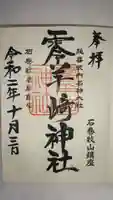 奉拝
延喜式内名神大社
石巻牧山鎮座
零羊崎神社
令和二年十月三日